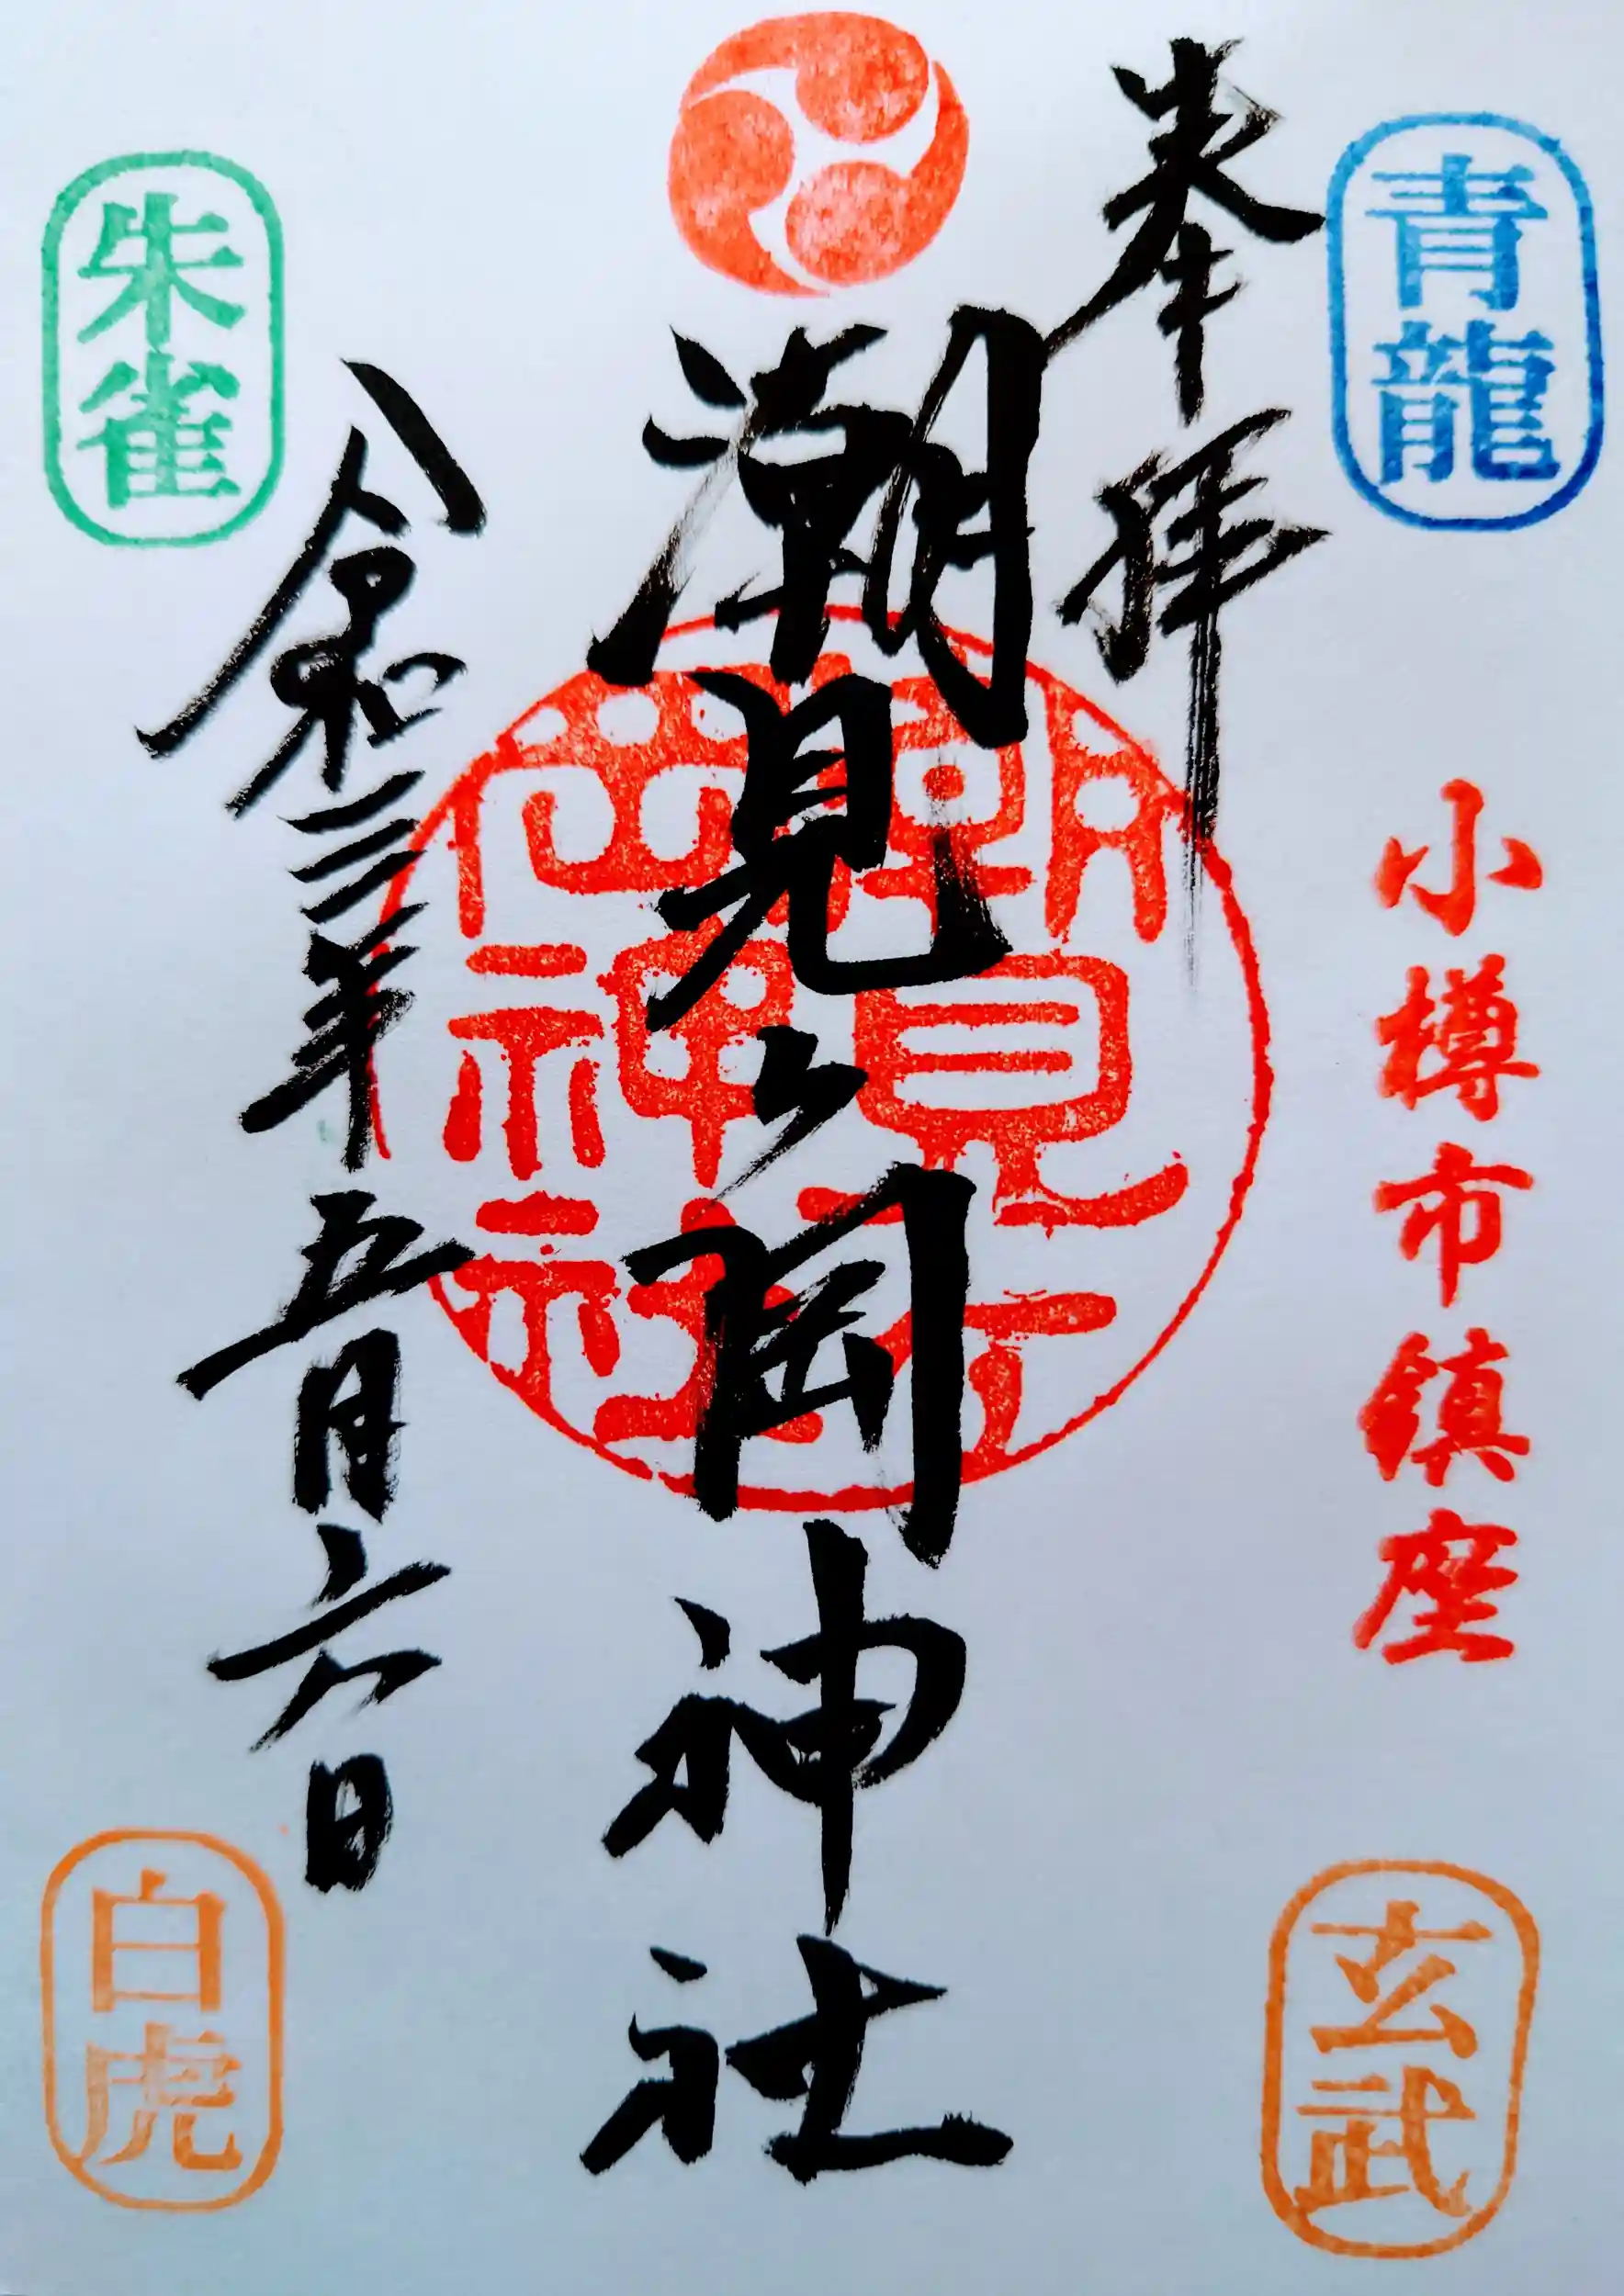 青龍
奉拝
小樽市鎮座
玄武
潮見ヶ岡神社
令和三年五月六日
朱雀
白虎